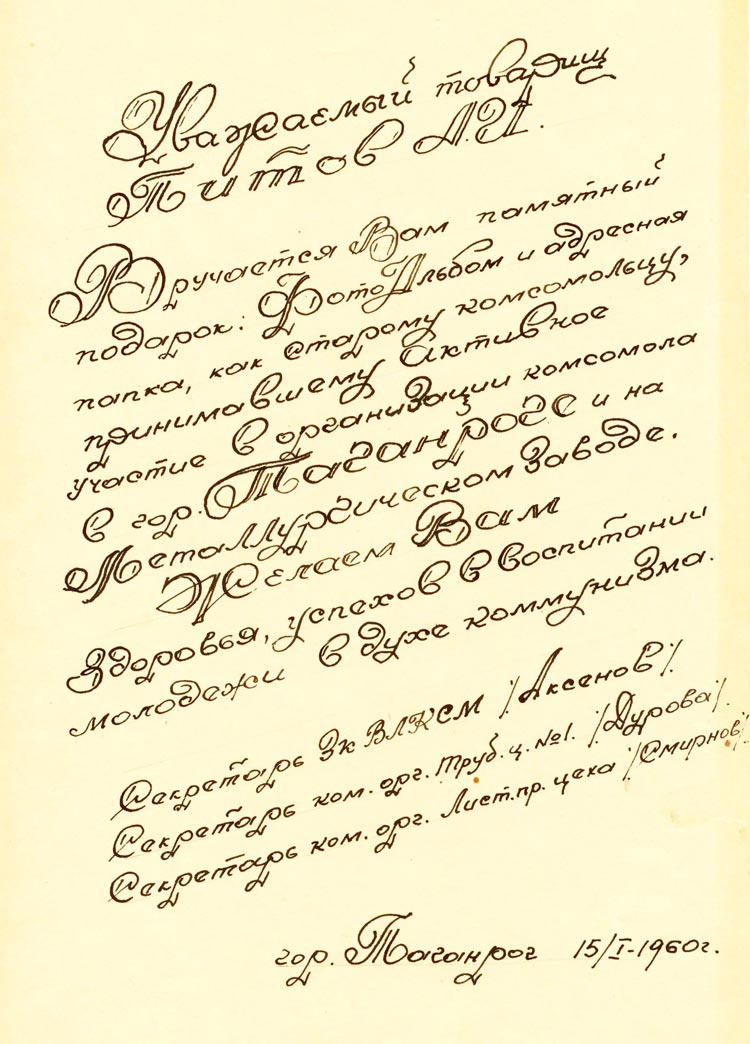 Уважаемый товарищ
Титов А.И.
Вручается Вам памятный
подарок: ФотоАльбом и адресная
папка, как старому комсомольцу,
принимавшему активное
участие в организации комсомола
в гор. Таганроге и на
Металлургическом заводе.
Желаем Вам
здоровья, успехов в воспитании
молодежи в духе коммунизма.
Секретарь Зк ВЛКСМ /Аксенов/.
Секретарь ком. орг. Труб. ц. №1. /Дурова/.
Секретарь ком. орг. Лист. пр. цеха /Смирнов/.
гор. Таганрог 15/I-1960г.